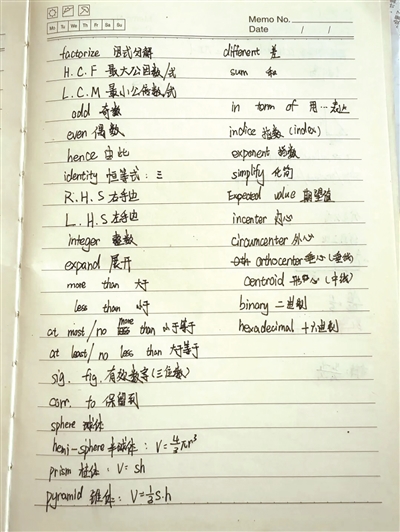 Memo No.
Mo Tu We Th Fr Sa Su
Date / /
factorize 因式分解
different 差
H.C.F 最大公因数/式
sum 和
L.C.M 最小公倍数/式
odd 奇数
in term of 用…表达
even 偶数
indice 指数 (index)
hence 由此
exponent 指数
identity 恒等式: 三
simplify 化简
R.H.S 右手边
Expected value 期望值
L.H.S 左手边
incenter 内心
integer 整数
circumcenter 外心
expand 展开
orthocenter 垂心 (垂线)
more than 大于
centroid 形心 (中线)
less than 小于
binary 二进制
at most/no more than 小于等于
hexadecimal 十六进制
at least/no less than 大于等于
sig. fig. 有效数字 (三位数)
corr. to 保留到
sphere 球体
hemi-sphere 半球体: V=4/3πr³
prism 柱体: V=sh
pyramid 锥体: V=1/3s.h